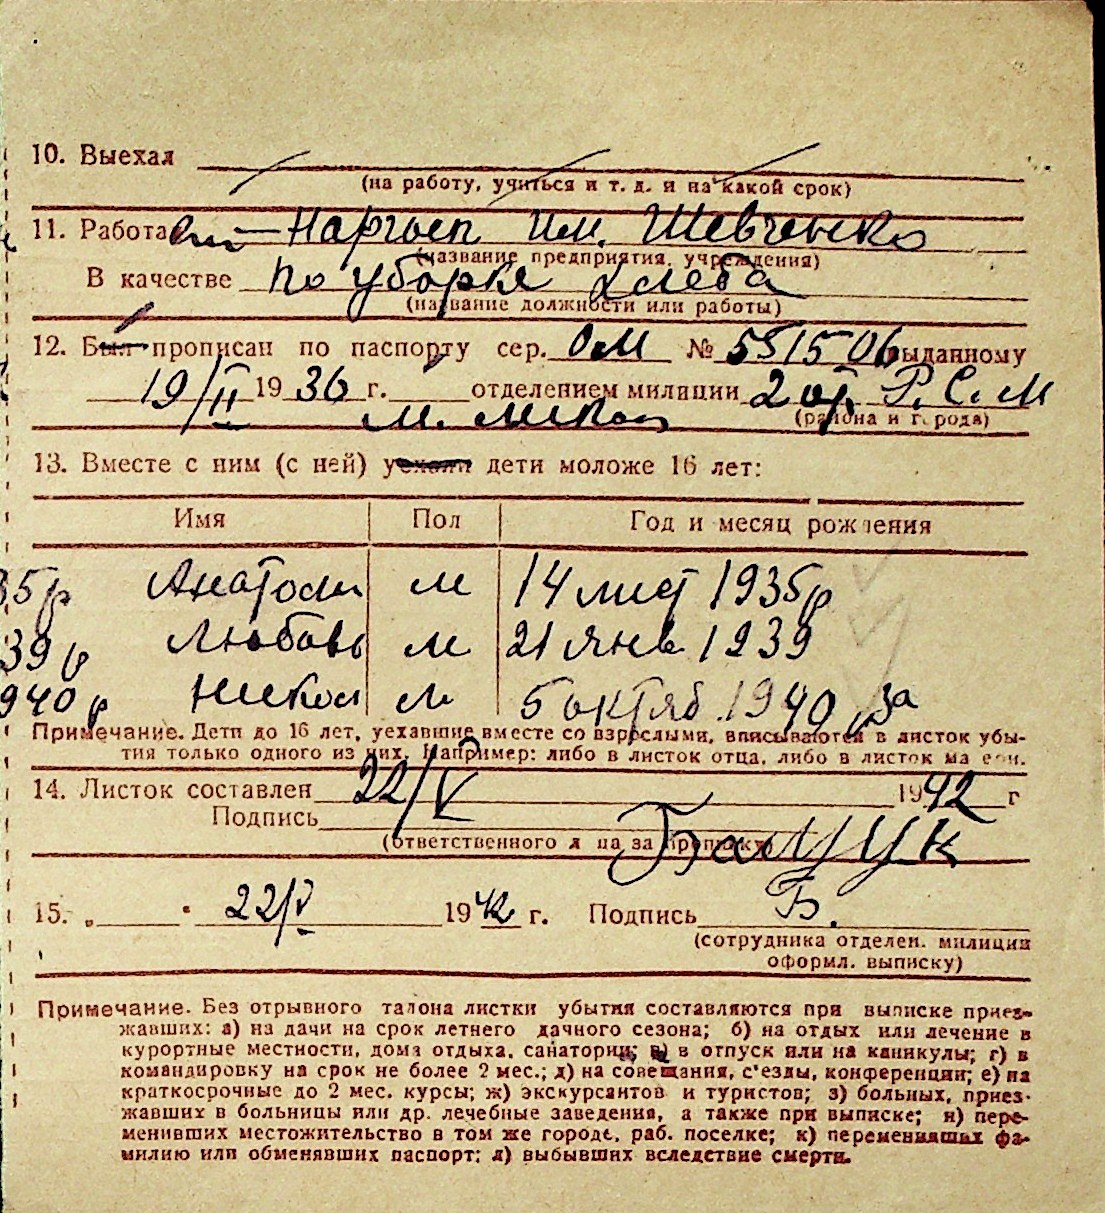 10. Выехал
(на работу, учиться и т. д. и на какой срок)
11. Работа
им. Шевченко
(название предприятия, учреждения)
В качестве по уборке хлеба
(название должности или работы)
12. Был прописан по паспорту сер. ОМ № 551506 выданному
19/II 1936 г. отделением милиции 2 Р. С. М
(района и города)
13. Вместе с ним (с ней) уехали дети моложе 16 лет:
Имя Пол Год и месяц рождения
35р Анатоли м 14 лист 1935р
39р Любовь м 21 янв 1939
940р Никол м 5 октяб. 1940р
Примечание. Дети до 16 лет, уехавшие вместе со взрослыми, вписываются в листок убы-
тия только одного из них. Например: либо в листок отца, либо в листок матери.
14. Листок составлен 22/V 1942 г
Подпись
(ответственного лица за прописку)
15. „ " 22/V 1942 г. Подпись Б.
(сотрудника отделен. милиции
оформл. выписку)
Примечание. Без отрывного талона листки убытия составляются при выписке приез-
жавших: а) на дачи на срок летнего дачного сезона; б) на отдых или лечение в
курортные местности, дома отдыха, санатории; в) в отпуск или на каникулы; г) в
командировку на срок не более 2 мес.; д) на совещания, с'езды, конференции; е) на
краткосрочные до 2 мес. курсы; ж) экскурсантов и туристов; з) больных, приез-
жавших в больницы или др. лечебные заведения, а также при выписке; и) пере-
менивших местожительство в том же городе, раб. поселке; к) переменивших фа-
милию или обменявших паспорт; л) выбывших вследствие смерти.